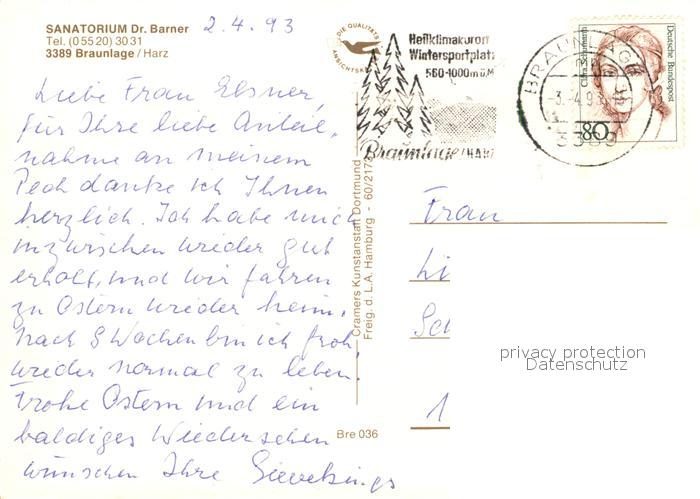 SANATORIUM Dr. Barner
Tel. (0 55 20) 30 31
3389 Braunlage / Harz
2.4.93
Liebe Frau Elsner,
für Ihre liebe Anteil,
nahme an meinem
Pech danke ich Ihnen
herzlich. Ich habe mich
inzwischen wieder gut
erholt, und wir fahren
zu Ostern wieder heim.
Nach 8 Wochen bin ich froh,
wieder normal zu leben.
Frohe Ostern und ein
baldiges Wiedersehen
wünschen Ihre Sievekings
DIE QUALITÄTS
ANSICHTSKARTE
Cramers Kunstanstalt Dortmund
Freig. d. L.A. Hamburg - 60/2178
Bre 036
Heilklimakurort
Wintersportplatz
560-1000m ü.M
Braunlage/HARZ
BRAUNLAGE
3.-4.93
3389
Clara Schumann
Deutsche Bundespost
80
Frau
Li
Sch
1
privacy protection
Datenschutz